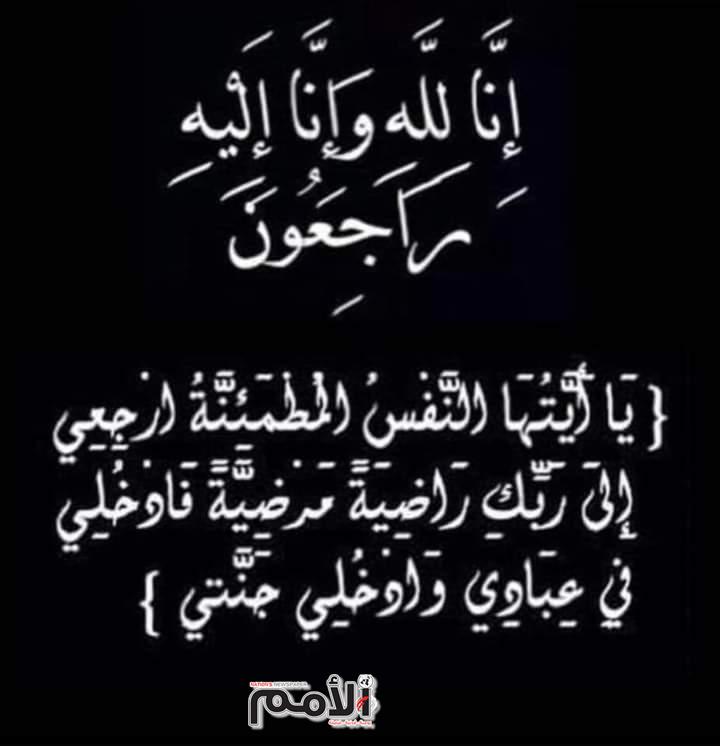 إِنَّا لِلَّهِ وَإِنَّا إِلَيْهِ
رَاجِعُونَ
{ يَا أَيَّتُهَا النَّفْسُ الْمُطْمَئِنَّةُ ارْجِعِي
إِلَى رَبِّكِ رَاضِيَةً مَرْضِيَّةً فَادْخُلِي
فِي عِبَادِي وَادْخُلِي جَنَّتِي }
NATIONS NEWSPAPER
الأمم